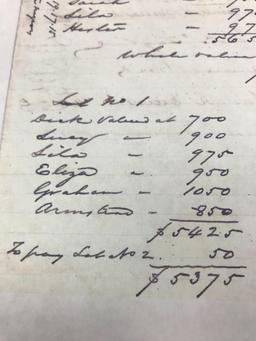 Lila " 97
Hester " 97
565
Whole value
Lot No 1
Dick valued at 700
Lucy " 900
Lila " 975
Eliza " 950
Graham " 1050
Armstead - 850
$5425
To pay Lot No 2. 50
$5375